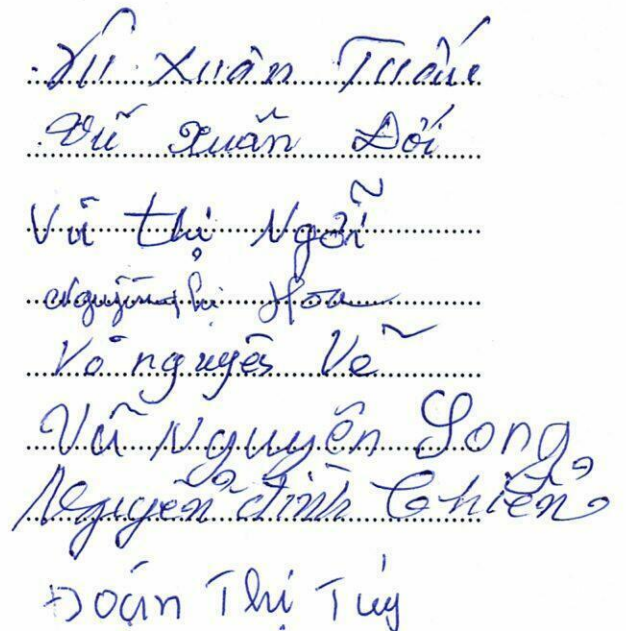 Vũ Xuân Tuấn
Vũ Xuân Đối
Vũ thị Ngỗi
Nguyễn thị Hoa
Võ nguyên Vẽ
Vũ Nguyên Song
Nguyễn đình Chiến
Đoàn Thị Túy